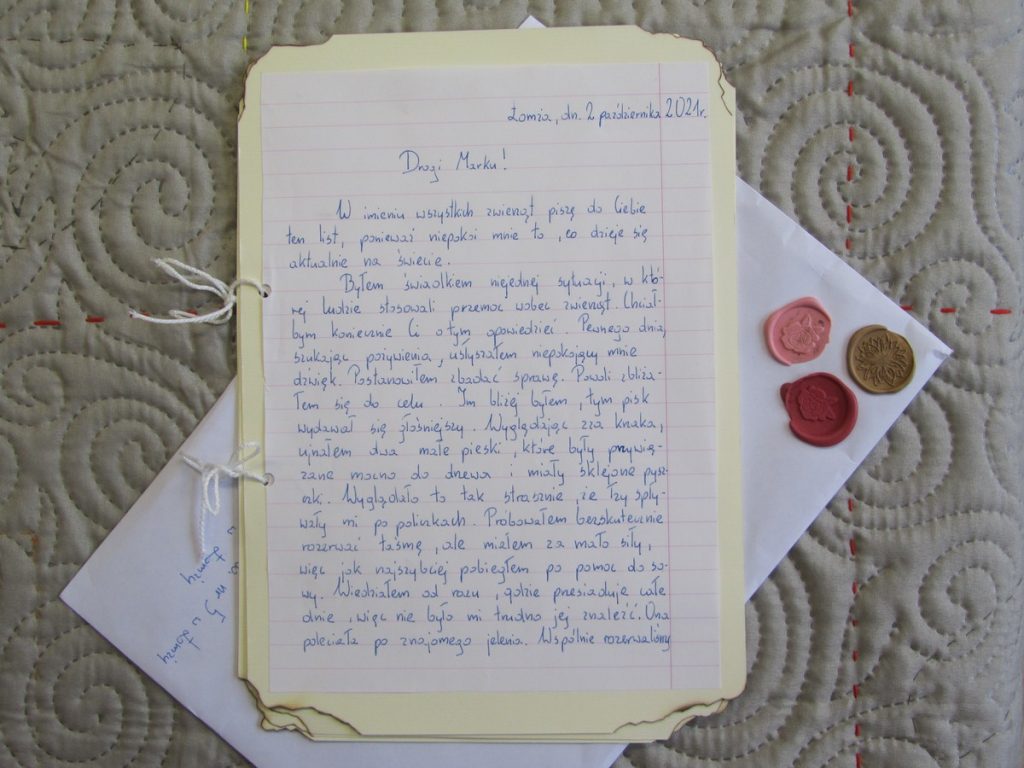 Łomża, dn. 2 października 2021r.
Drogi Marku!
W imieniu wszystkich zwierząt piszę do Ciebie
ten list, ponieważ niepokoi mnie to, co dzieje się
aktualnie na świecie.
Byłem świadkiem niejednej sytuacji, w któ-
rej ludzie stosowali przemoc wobec zwierząt. Chciał-
bym koniecznie Ci o tym opowiedzieć. Pewnego dnia,
szukając pożywienia, usłyszałem niepokojący mnie
dźwięk. Postanowiłem zbadać sprawę. Powoli zbliża-
łem się do celu. Im bliżej byłem, tym pisk
wydawał się głośniejszy. Wyglądając zza krzaka,
ujrzałem dwa małe pieski, które były przywią-
zane mocno do drzewa i miały sklejone pysz-
czki. Wyglądało to tak strasznie, że łzy spły-
wały mi po policzkach. Próbowałem bezskutecznie
rozerwać taśmę, ale miałem za mało siły,
więc jak najszybciej pobiegłem po pomoc do so-
wy. Wiedziałem od razu, gdzie przesiaduje całe
dnie, więc nie było mi trudno jej znaleźć. Ona
poleciała po znajomego jelenia. Wspólnie rozerwaliśmy
w Łomży
nr 5 w Łomży